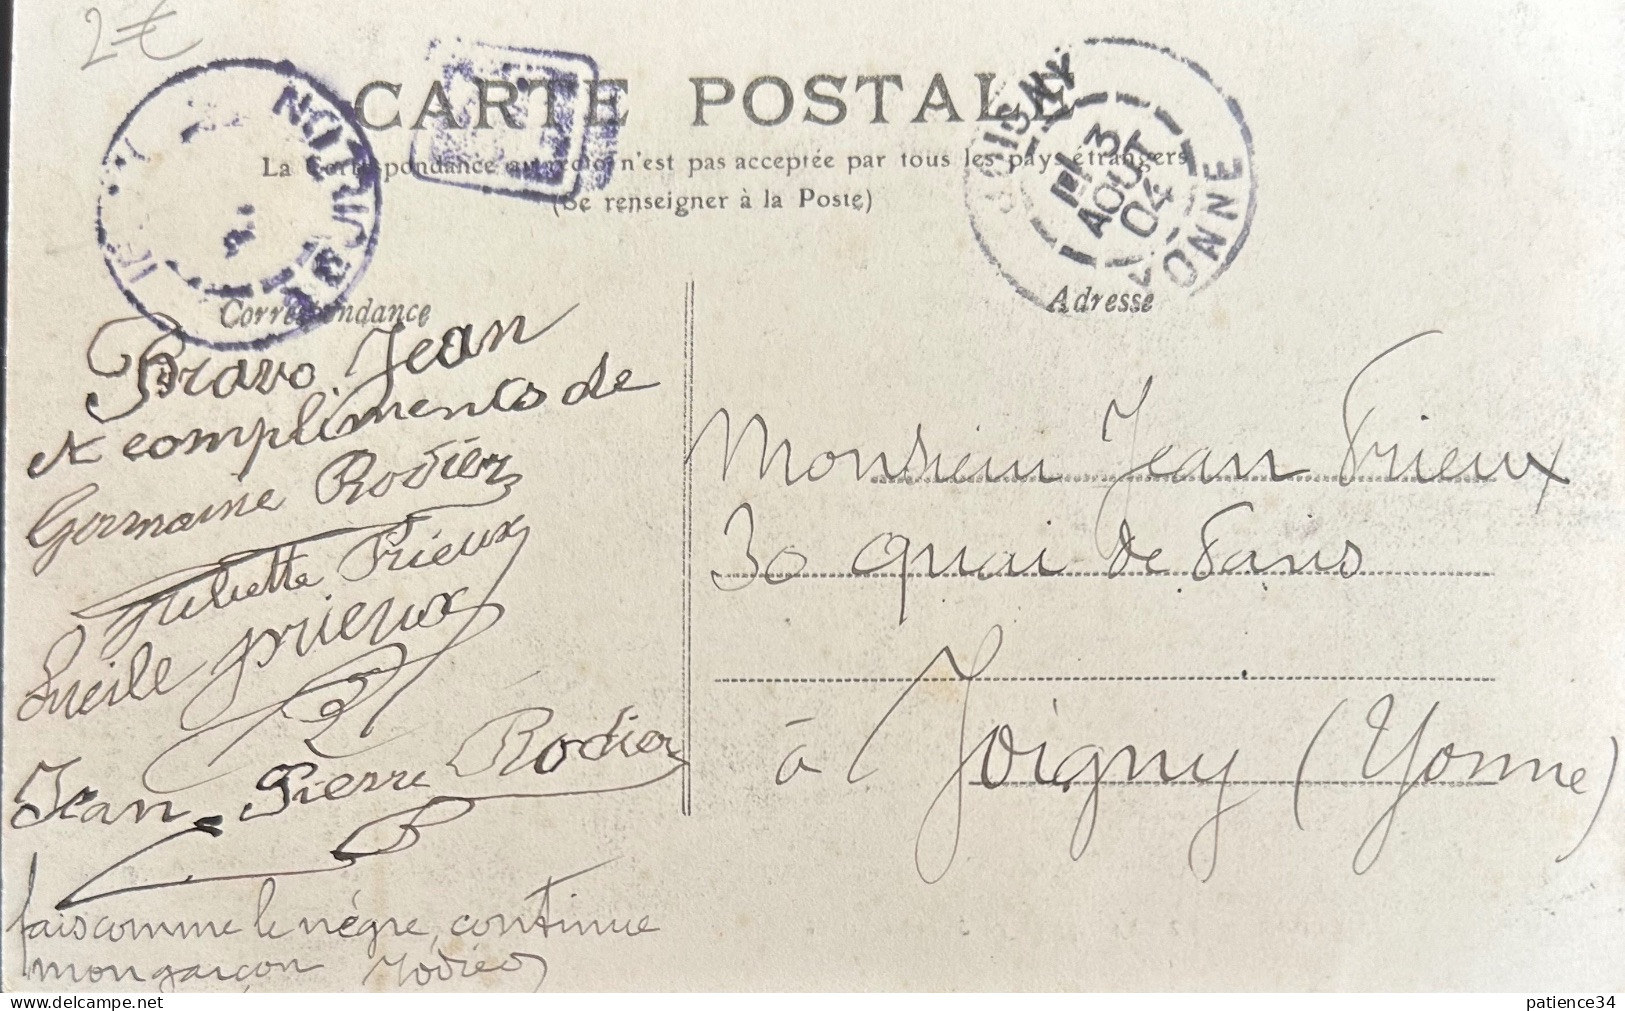 2€
CARTE POSTALE
La Correspondance au recto n'est pas acceptée par tous les pays étrangers
(Se renseigner à la Poste)
JOIGNY
3
AOUT
04
YONNE
Correspondance
Adresse
Bravo Jean
et compliments de
Germaine Rodier
Juliette Prieux
Lucile Prieux
Jean-Pierre Rodier
fais comme le nègre, continue
mon garçon Rodier
Monsieur Jean Prieux
30 Quai de Paris
à Joigny (Yonne)
patience34